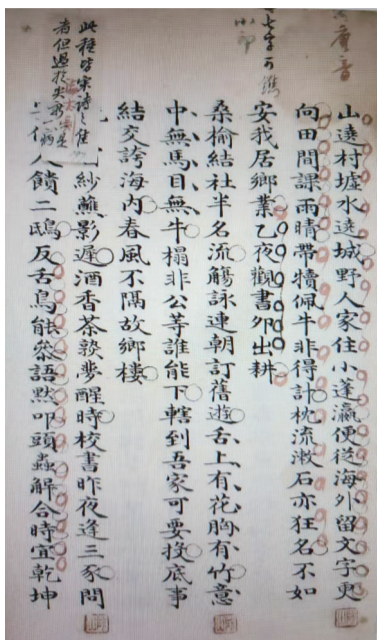 山遶村墟水遶城野人家住小蓬瀛便從海外留文字更
向田間課雨晴帶犢佩牛非得計枕流漱石亦狂名不如
七字可鐫
小印
安我居鄉業乙夜觀書卯出耕
桑榆結社半名流觴詠連朝訂舊遊舌上有花胸有竹意
中無馬目無牛榻非公等誰能下轄到吾家可要投底事
結交誇海內春風不隔故鄉樓
此種皆宋詩之佳
者但過於尖新
紗蘸影遲酒香茶熟夢醒時校書昨夜逢三豕問
人饋二鴟反舌鳥能參語默叩頭蟲解合時宜乾坤